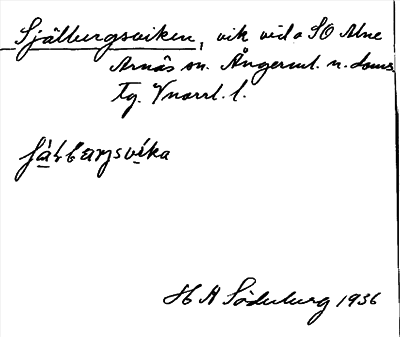 Själbergsviken, vik vid a SO Alne
Arnäs sn. Ångerml. n. doms.
Tg. Vnorrl. l.
H A Söderberg 1936